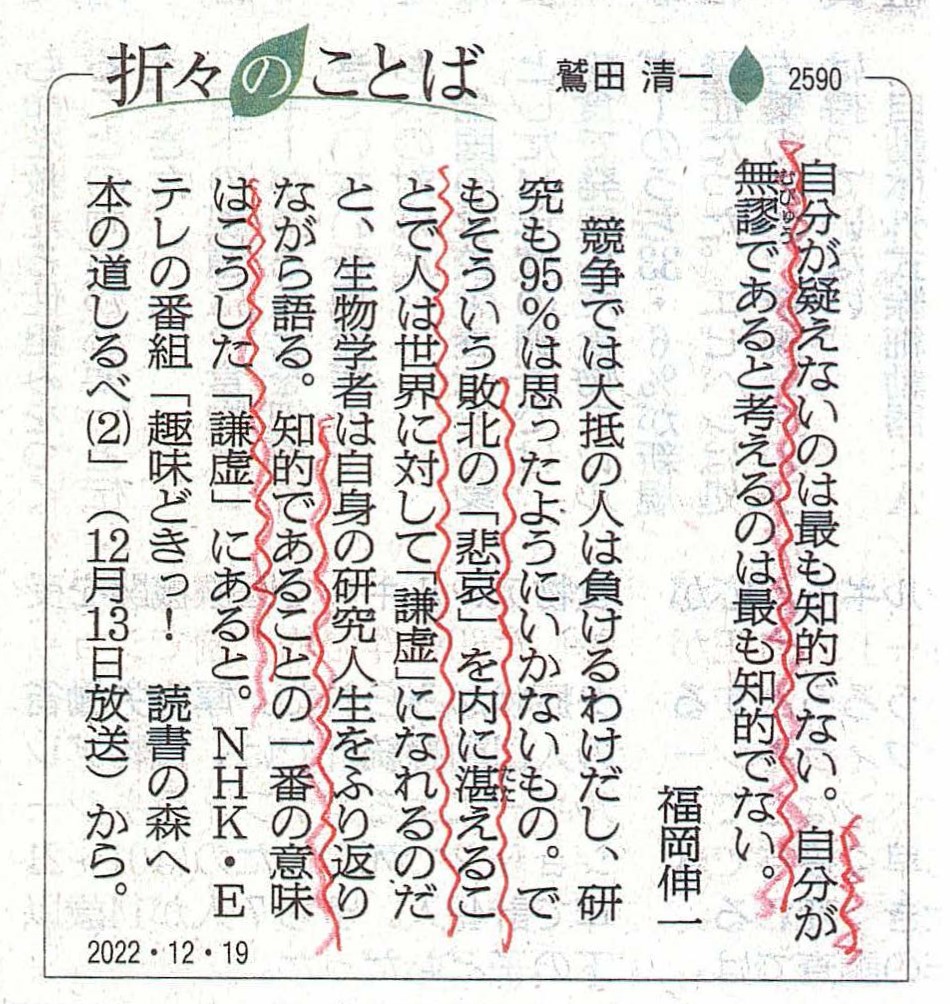 折々のことば 鷲田 清一 2590
自分が疑えないのは最も知的でない。自分が
無謬であると考えるのは最も知的でない。
むびゅう
福岡伸一
競争では大抵の人は負けるわけだし、研
究も95%は思ったようにいかないもの。で
もそういう敗北の「悲哀」を内に湛えるこ
たた
とで人は世界に対して「謙虚」になれるのだ
と、生物学者は自身の研究人生をふり返り
ながら語る。知的であることの一番の意味
はこうした「謙虚」にあると。NHK・E
テレの番組「趣味どきっ! 読書の森へ
本の道しるべ(2)」(12月13日放送)から。
2022・12・19